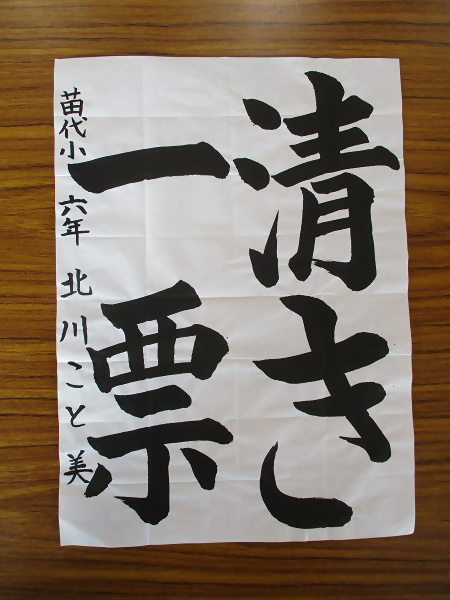 清き
一票
苗代小 六年 北川こと美